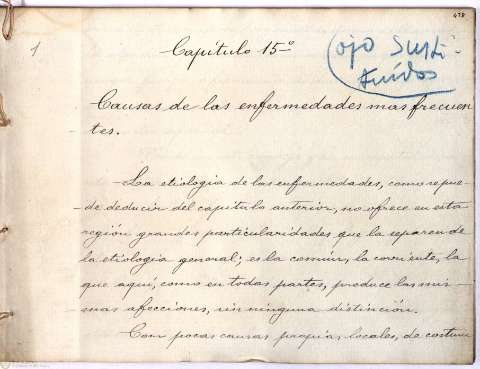 478
1
Capítulo 15º
ojo Susti-
tuídos
Causas de las enfermedades mas frecuen
tes.
La etiologia de las enfermedades, como se pue-
de deducir del capitulo anterior, no ofrece en esta
región grandes particularidades que la separen de
la etiologia general; es la común, la corriente, la
que aquí, como en todas partes, produce las mis-
mas afecciones, sin ninguna distinción.
Com pocas causas propias, locales, de costum